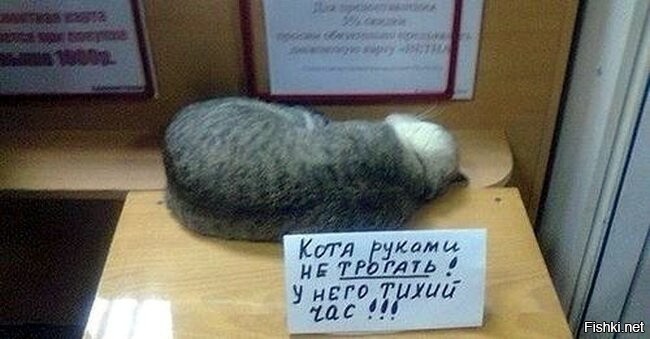 карта
при покупке
1000р.
Для предоставления
3% скидки
просим обязательно предъявить
дисконтную карту
Кота руками
не трогать!
У него тихий
час!!!
Fishki.net